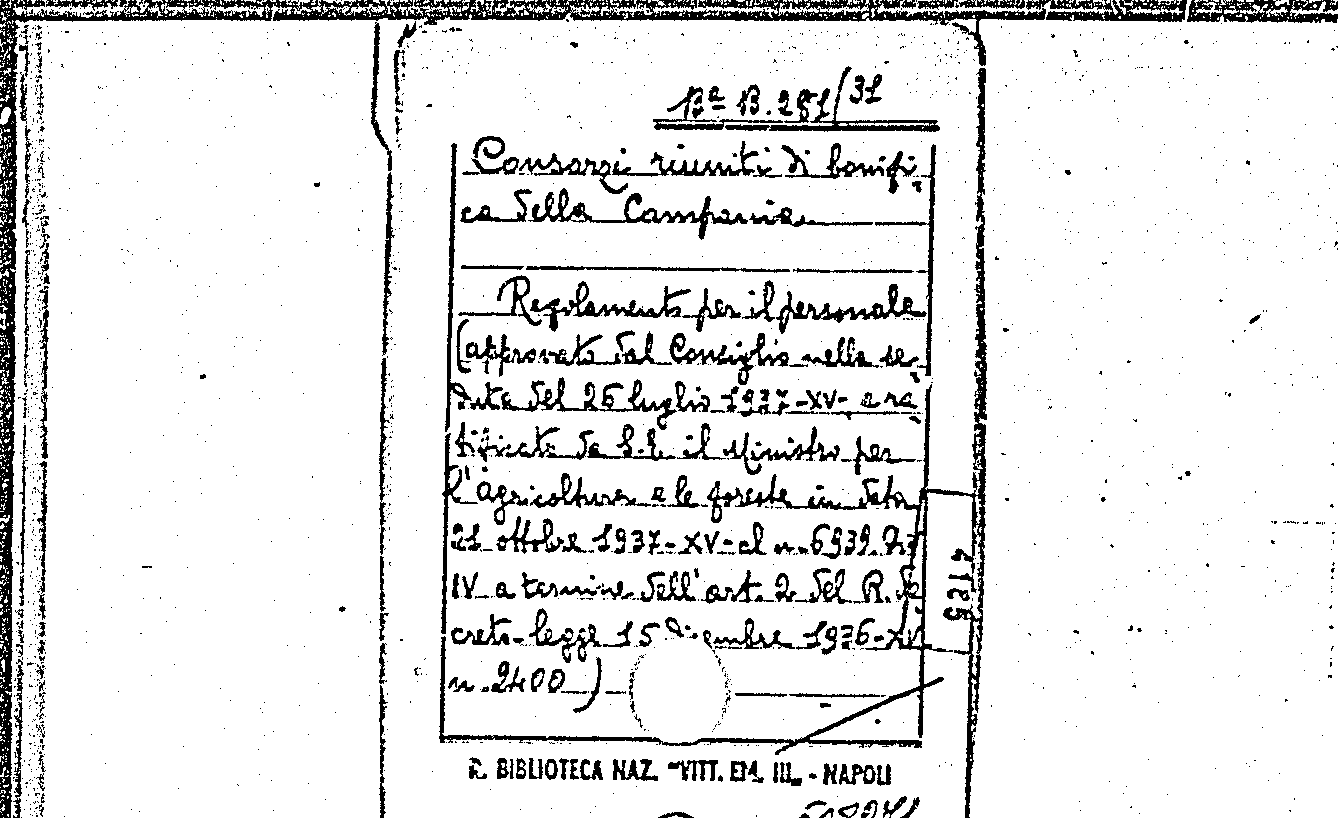 Bª B. 281/31
Consorzi riuniti di bonifi-
ca della Campania
Regolamento per il personale
(approvato dal Consiglio nella se-
duta del 26 luglio 1937-XV- e ra-
tificato da S.E. il Ministro per
l'agricoltura e le foreste in data
21 ottobre 1937-XV- al n. 6939.
IV a termine dell'art. 2 del R. de-
creto-legge 15 dicembre 1936-XV
n. 2400)
R. BIBLIOTECA NAZ. "VITT. EM. III„ - NAPOLI